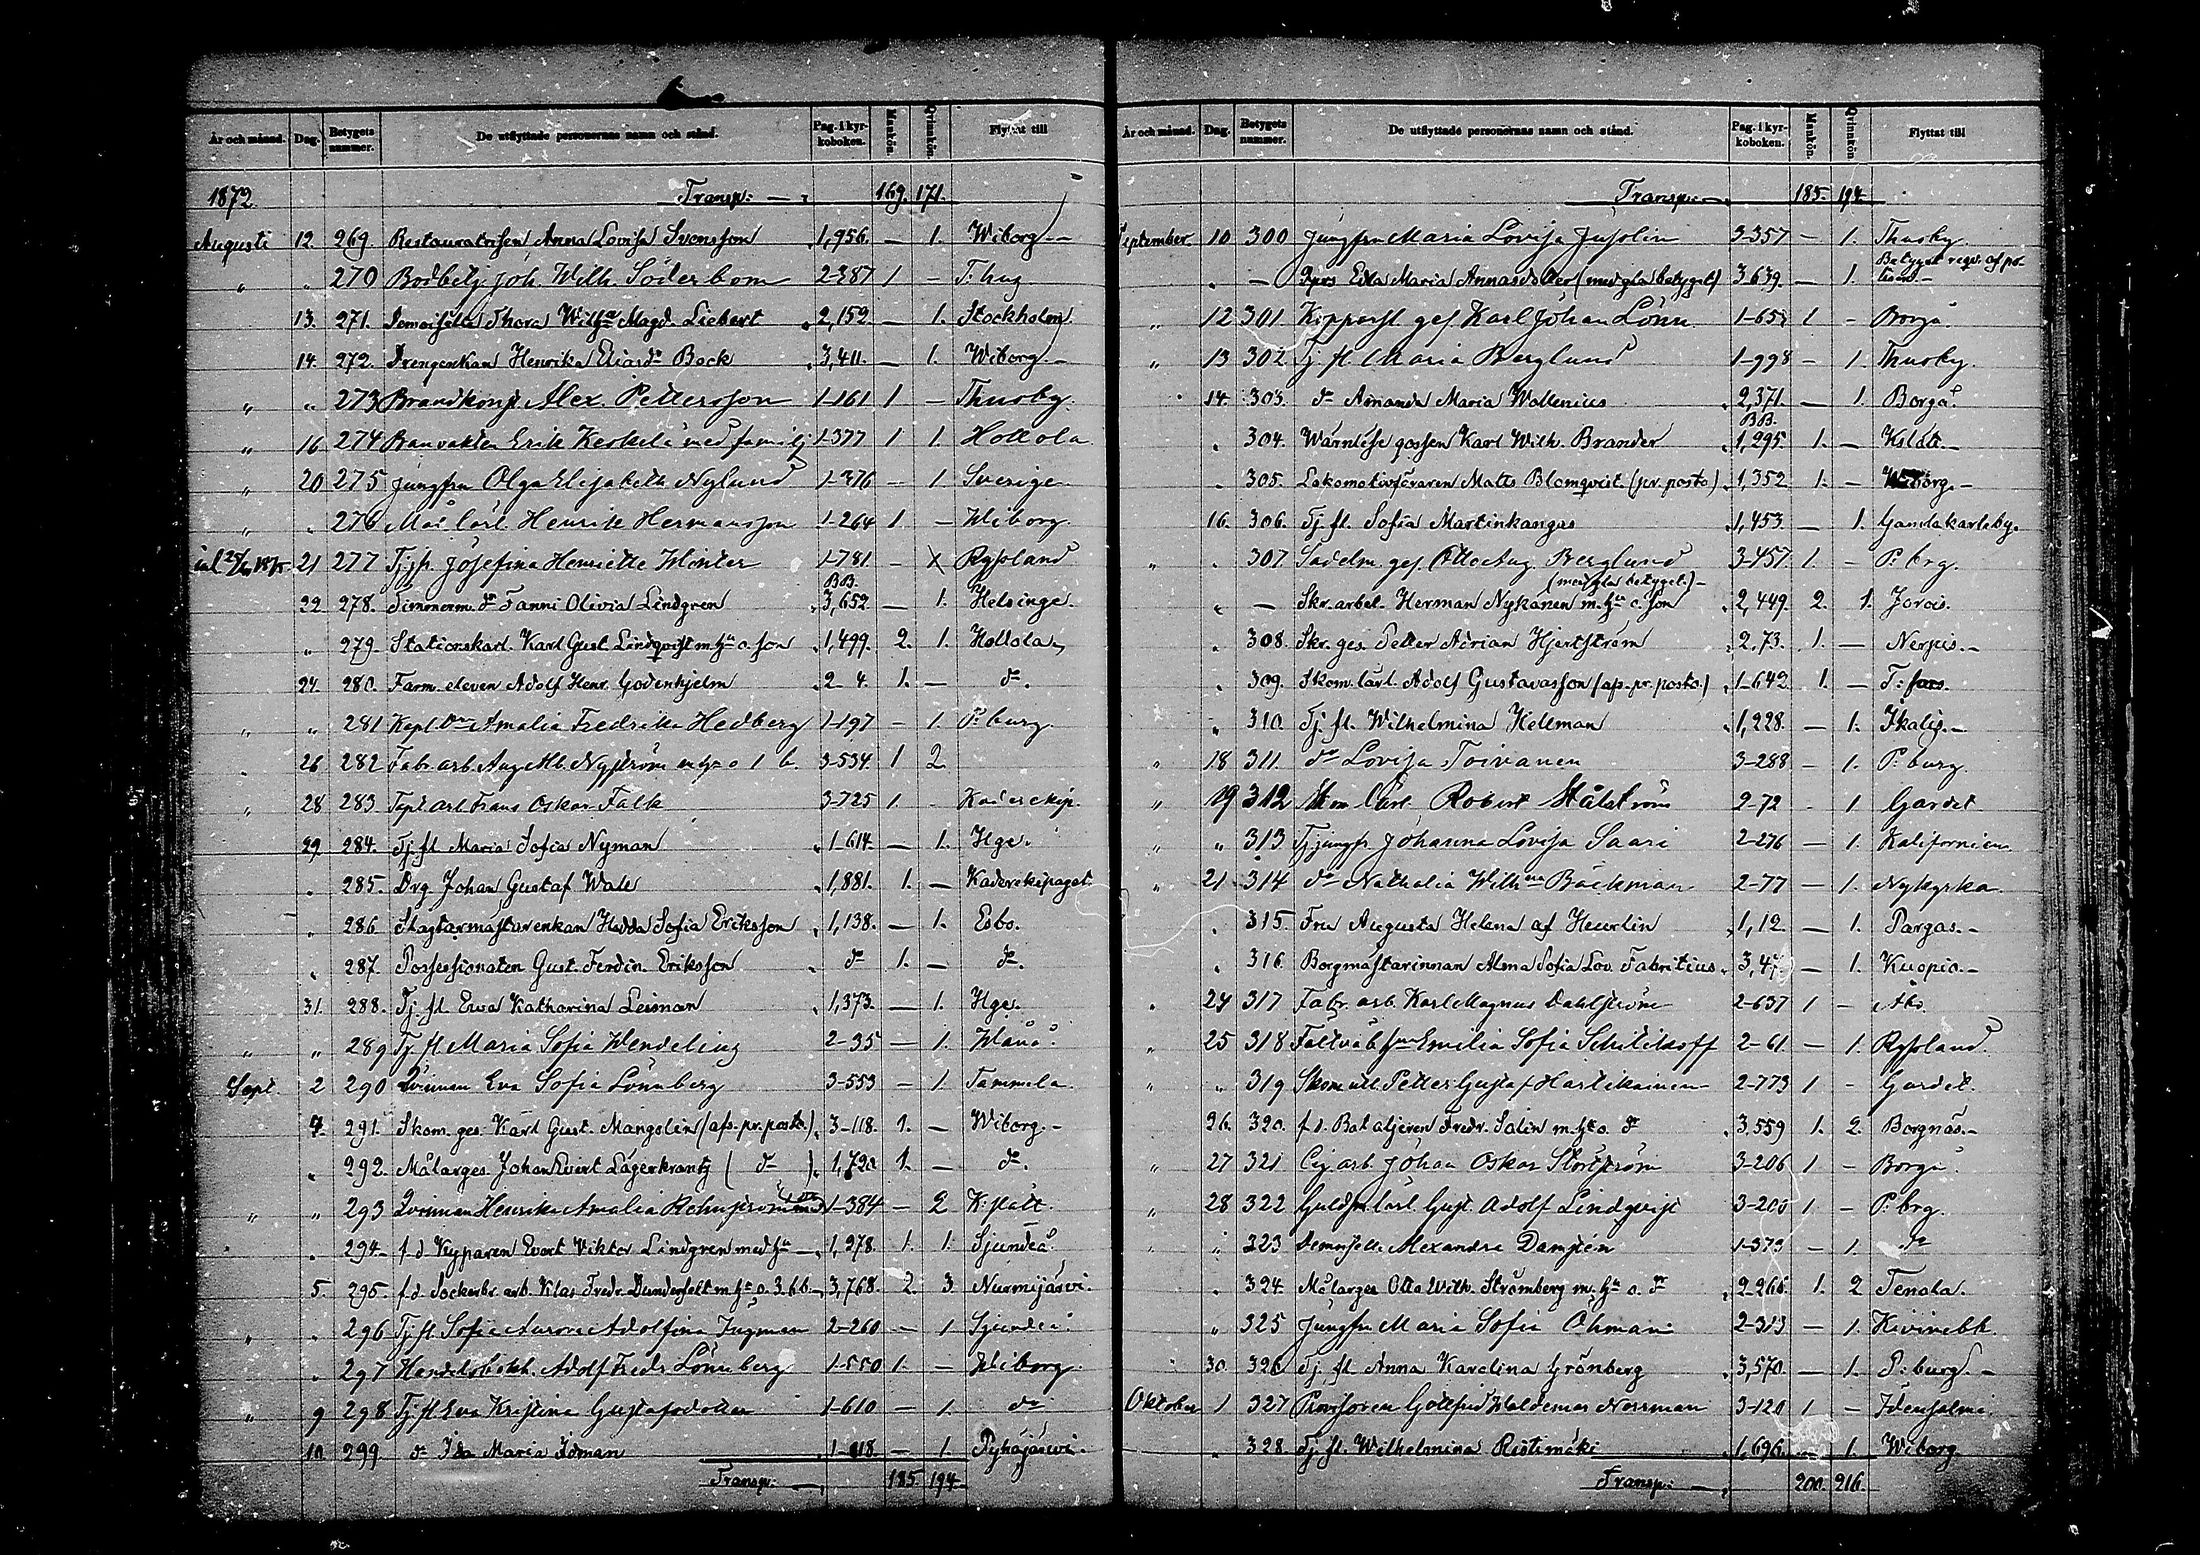 År och månad. Dag. Betygets nummer. De utflyttade personernas namn och stånd. Pag. i kyrkoboken. Mankön. Qvinnkön. Flyttat till
1872 Transp: — 169. 171.
Augusti 12. 269. Restauratrisen Anna Lovisa Svensson 1,956. — 1. Wiborg —
" " 270 Bodbetj. Joh. Wilh. Söderbom 2-387 1 — T:hus
13. 271. Demoiselle Thora Wilh:a Magd. Liebert 2,152. — 1. Stockholm
14. 272. Drengenkan Henrika Eliasdr Bock 3,411. — 1. Wiborg. —
" " 273 Brandkonst. Alex. Pettersson 1-161 1 — Thusby.
" 16 274 Banvakten Erik Kerkelä med familj 1-377 1 1. Hollola
" 20 275 Jungfru Olga Elisabeth Nylund 1-376 — 1 Sverige
" " 276 Mål. lärl. Henrik Hermansson 1-264 1 — Wiborg.
21 277 Tj.fl. Josefina Henriette Winter 1-781. — X Ryssland
22. 278. Timmerm. dr Fanni Olivia Lindgren BB. 3,652. — 1. Helsinge.
" 279. Stationskarl. Karl Gust. Lindqvist m. hu o. son 1,499. 2. 1. Hollola
24. 280. Farm. eleven Adolf Henr. Godenhjelm 2-4. 1. — do.
" " 281 Kapt. Amalia Fredrika Hedberg 1-197 — 1. P:burg.
26 282 Fabr. arb. Aug. Alb. Nyström m hu o 1 b. 3-534. 1 2
" 28 283 Arb. Frans Oskar Falk 3-725 1. — Kaderskp.
29. 284. Tj. fl. Maria Sofia Nyman 1-614. — 1. Hge.
" 285. Drg Johan Gustaf Wale 1,881. 1. — Kaderskepaget.
" 286 Slagtarmästarenkan Hedda Sofia Eriksson 1,138. — 1. Esbo.
" 287. Possessionaten Gust. Ferdin. Eriksson do 1. — do.
31. 288. Tj. fl. Ewa Katharina Leiman 1,373. — 1. Hge.
" " 289 Tj. fl Maria Sofia Wendelius 2-35 — 1.
Sept. 2 290 Qvinnan Eva Sofia Lönnberg 3-553 — 1. Tammela
4. 291. Skom. ges. Karl Gust. Mangolin (afs. pr. posto.) 3-118. 1. — Wiborg. —
" 292. Målarges. Johan Evert Lagerkrantz ( do ) 1,720. 1. — do.
" " 293 Qvinnan Henrika Amalia Rehnström 1-384 — 2 K:slätt.
" 294. f d Kyparen Evert Viktor Lindgren med hu 1,278. 1. 1. Sjundeå
5. 295. f.d. Sockerbr. arb. Klas Fredr. Dunderfelt m. hu o. 3. bb. 3,768. 2. 3. Nurmijärvi.
" " 296 Tj. fl. Sofia Aurora Adolfina Ingman 2-260 — 1 Sjundeå
" 297 Handelsbokh. Adolf Fredr. Lönnberg 1-550 1. — Wiborg.
" 9 298 Tj. fl Eva Kristina Gustafsdotter 1-610 — 1. do
10. 299 do Ida Maria Idman 1- — 1. Pyhäjärvi.
Transp: — 185. 194.
År och månad. Dag. Betygets nummer. De utflyttade personernas namn och stånd. Pag. i kyrkoboken. Mankön. Qvinnkön Flyttat till
Transp: — 185. 194.
September 10 300 Jungfru Maria Lovisa Juslin 3-357 — 1. Thusby.
" — Edla Maria Annasdotter (med gla betyget) 3,639. — 1.
" 12 301. Kopparsl. ges. Karl Johan Lönn 1-657 1 — Borgå.
" 13 302 Tj. fl. Maria Berglund 1-998 — 1. Thusby.
14. 303. do Amanda Maria Wallenius 2,371. — 1. Borgå.
" 304. Wärnlöse gossen Karl Wilh. Brander BB. 1,295. 1. —
" 305. Lokomotivföraren Matts Blomqvist. (pr. posto) 1,352 1. — Wiborg. —
16. 306. Tj. fl. Sofia Martinkangas 1,453. — 1. Gamlakarleby.
" 307 Sadelm. ges. Otto Aug. Berglund 3-457 1. — P:brg.
" — Skr. arbet. Herman Nykänen m. hu o. son (med gla betyget.) — 2,449. 2. 1. Jorois.
" 308. Skr. ges. Petter Adrian Hjertström 2,73. 1. — Nerpis. —
" 309. Skom. lärl. Adolf Gustavasson (afs. pr. posto.) 1-642 1. — T:fors.
" 310. Tj. fl. Wilhelmina Hellman 1,228. — 1. Ikalis. —
" 18 311. do Lovisa Toivanen 3-288 — 1. P:burg.
" 19 312 Skom. lärl Robert Stålström 2-72 — 1 Gardet
" " 313 Tj.jungfr. Johanna Lovisa Saari 2-276 — 1. Kalifornien
" 21 314 do Nathalia Wilhna Bäckman 2-77 — 1. Nykyrka.
" 315 Fru Augusta Helena af Heurlin 1,12. — 1. Pargas. —
" 316. Borgmästarinnan Alma Sofia Lov. Fabritius 3,47. — 1. Kuopio. —
" 24 317 Fabr. arb. Karl Magnus Dahlström 2-637 1 — Åbo.
" 25 318 Emilia Sofia 2-61. — 1. Ryssland.
" " 319 Skom. Petter Gustaf Hartikainen 2-773 1 — Gardet.
26. 320. f.d. Bataljeren Fredr. Salin m. hu o. dr 3,559 1. 2. Borgnäs. —
" 27 321 Cig. arb. Johan Oskar Storström 3-206 1 — Borgå.
" 28 322 Guldsm. lärl. Gust. Adolf Lindqvist 3-200 1 — P:brg.
" " 323 Demoiselle Alexandra Damstén 1-373 — 1. do
" 324. Målarges Otto Wilh. Strömberg m. hu o. dr 2-266 1. 2 Tenala.
" 325 Jungfru Maria Sofia Öhman 2-313 — 1. Kivinebb.
30. 326 Tj. fl. Anna Karolina Grönberg 3,570. — 1. P:burg. —
Oktober 1 327 Provisoren Gottfrid Waldemar Norrman 3-120 1 — Idensalmi.
" 328. Tj. fl. Wilhelmina Ristimäki 1,696. — 1. Wiborg
Transp: — 200. 216.